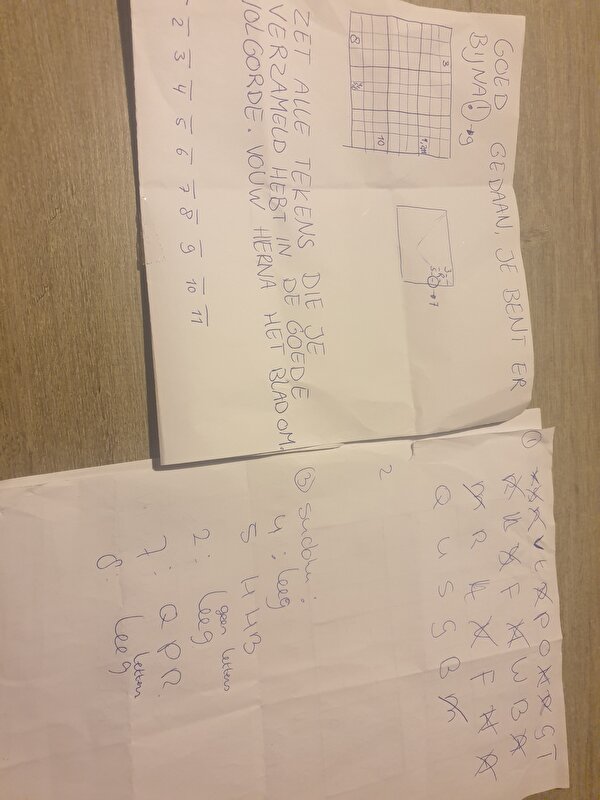 GOED GEDAAN, JE BENT ER
BIJNA! → 9
3
8
10
3
5
→ 7
ZET ALLE TEKENS DIE JE
VERZAMELD HEBT IN DE GOEDE
VOLGORDE. VOUW HIERNA HET BLAD OM.
2 3 4 5 6 7 8 9 10 11
①
P O
G T
F
W B
R
F
Q U S G B
2
③ sudoku:
4: leeg
5 H H B
2: geen letters
leeg
7: Q P R
8: leeg
letters